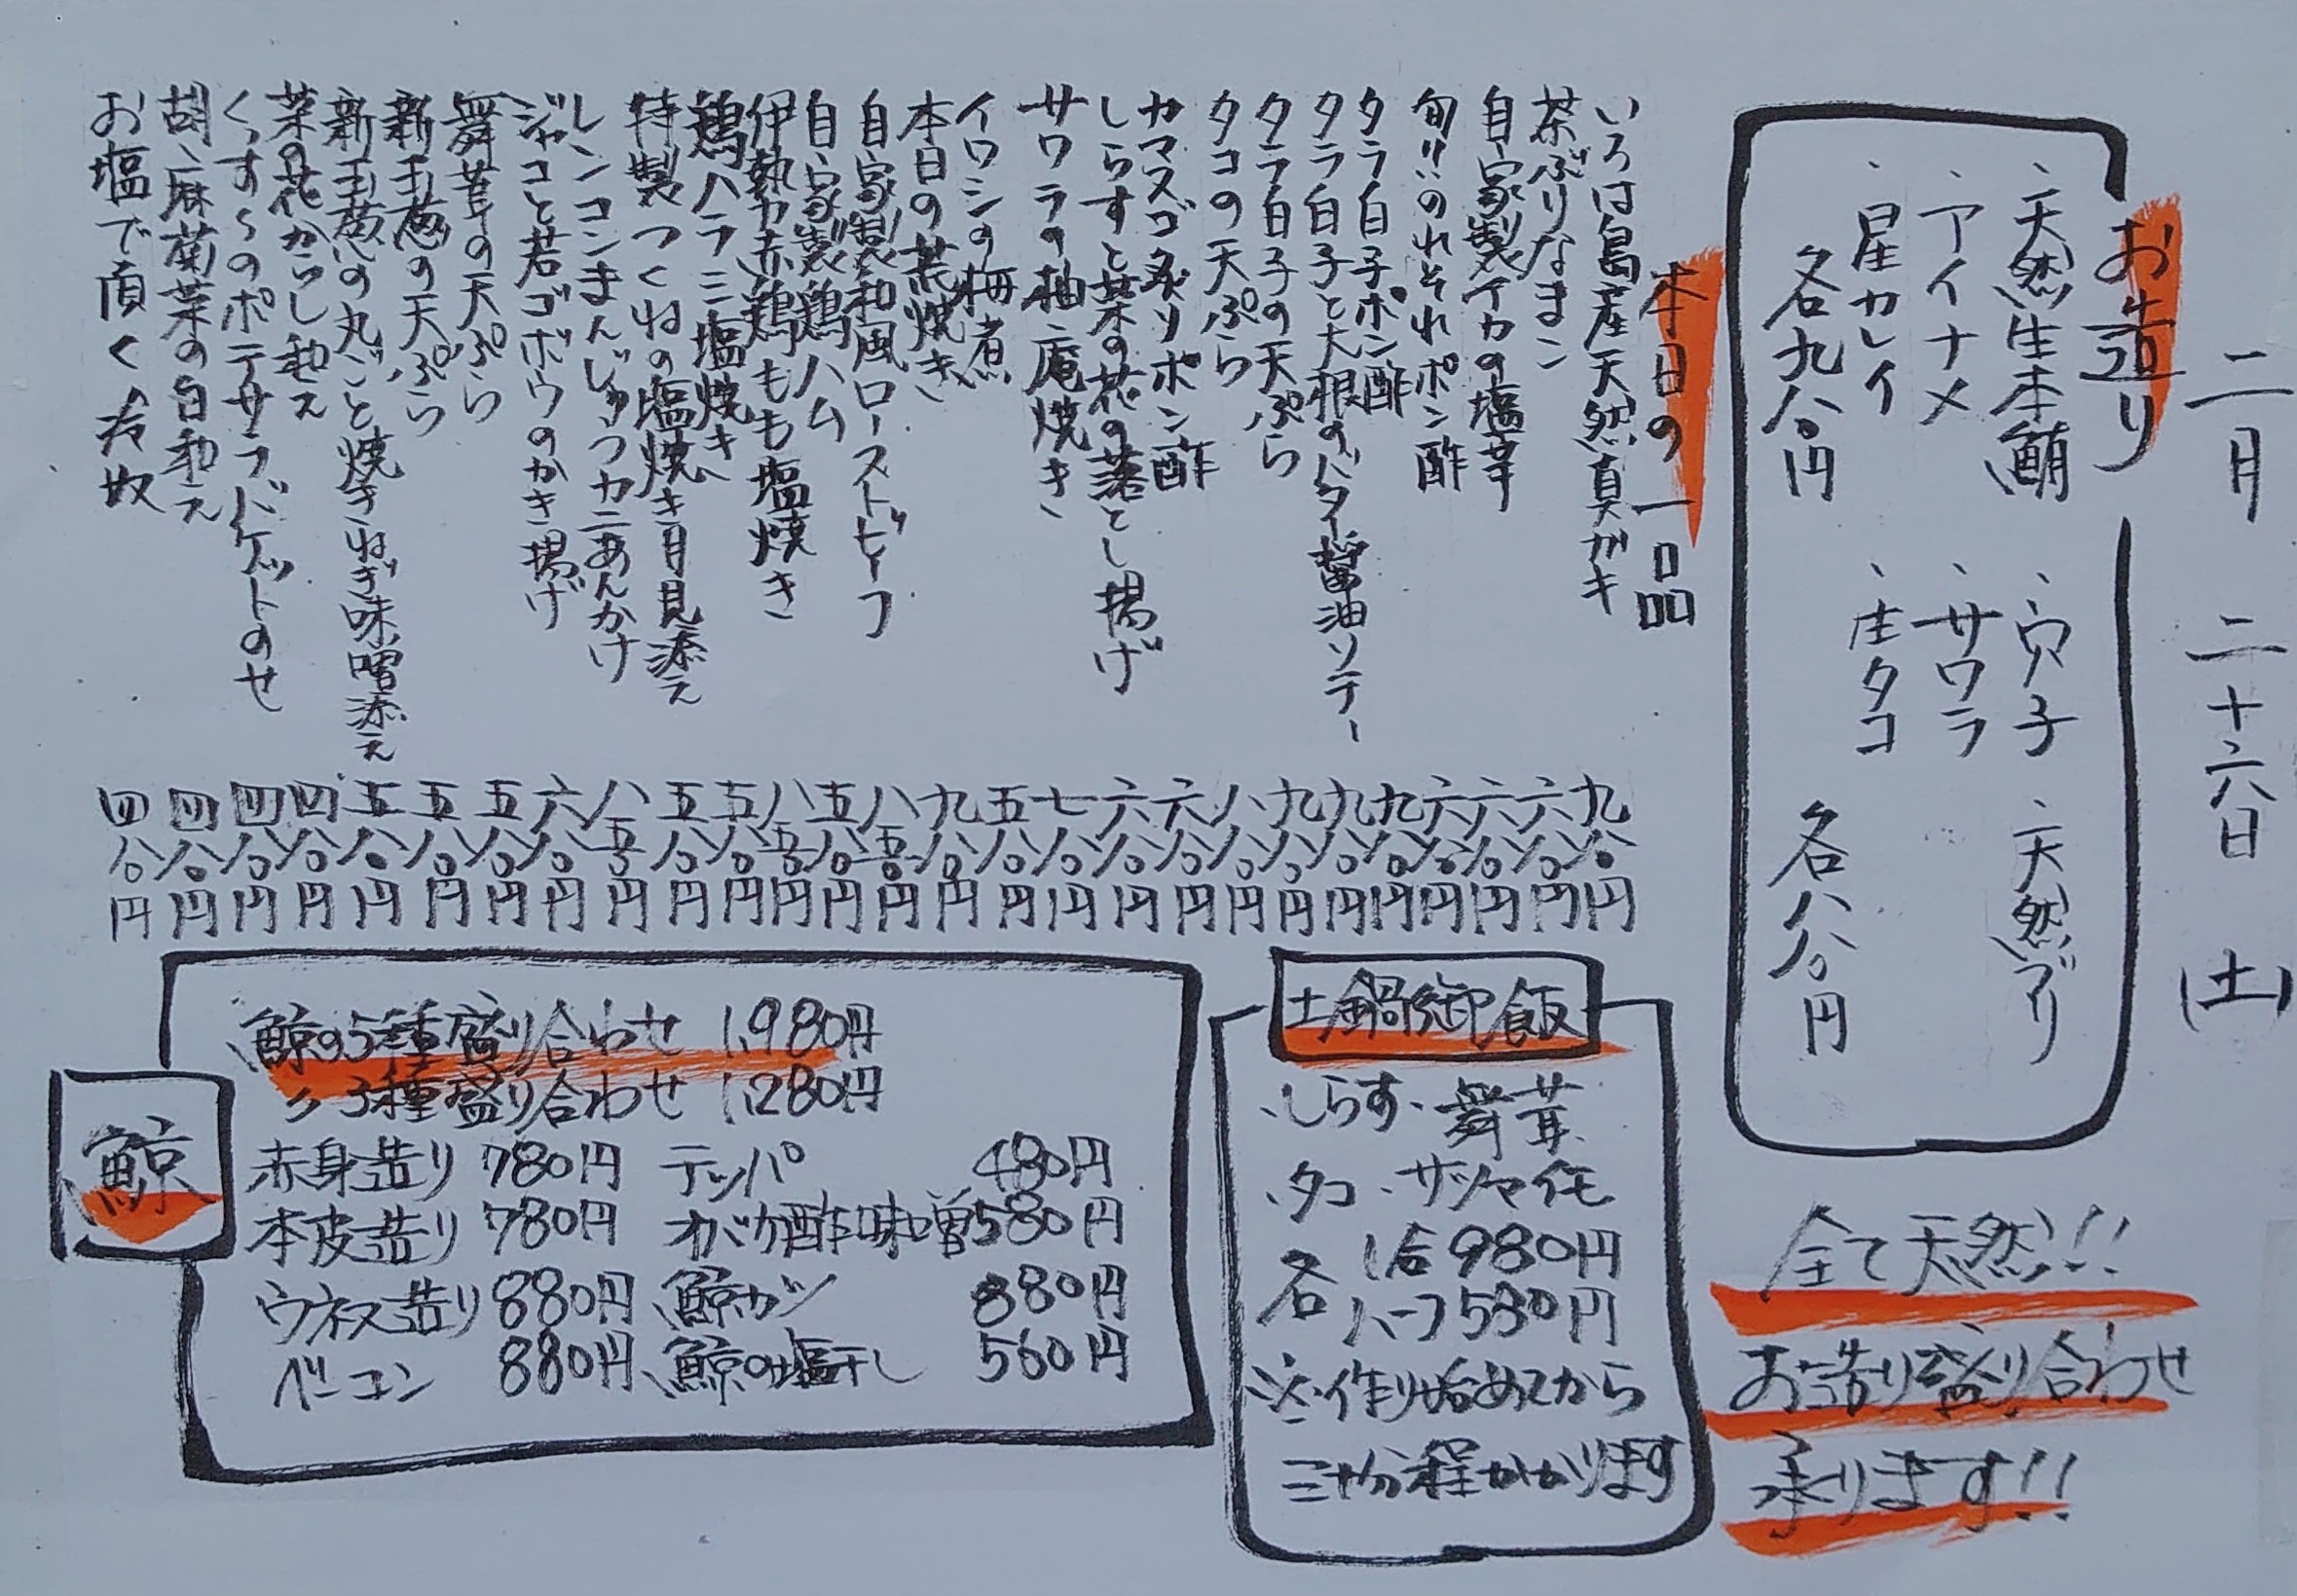 二月 二十六日 (土)
お造り
、天然生本鮪 、穴子 、天然ブリ
、アイナメ 、サワラ
、星カレイ 、生タコ
各九八〇円 各八八〇円
全て天然!!
お造り盛り合わせ
承ります!!
本日の一品
いろは島産天然真ガキ 九八〇円
茶ぶりなまこ 六八〇円
自家製イカの塩辛 六八〇円
旬!!のれそれポン酢 六八〇円
タラ白子ポン酢 九八〇円
タラ白子と大根のバター醤油ソテー 九八〇円
タラ白子の天ぷら 九八〇円
タコの天ぷら 八八〇円
カマスゴ炙りポン酢 六八〇円
しらすと菜の花の落とし揚げ 六八〇円
サワラの柚庵焼き 七八〇円
イワシの梅煮 五八〇円
本日の荒焼き 九八〇円
自家製和風ローストビーフ 八五〇円
自家製鶏ハム 五八〇円
伊勢赤鶏もも塩焼き 八五〇円
鶏ハラミ塩焼き 五八〇円
特製つくねの塩焼き月見添え 五八〇円
レンコンまんじゅうカニあんかけ 八五〇円
ジャコと若ゴボウのかき揚げ 六八〇円
舞茸の天ぷら 五八〇円
新玉葱の天ぷら 五八〇円
新玉葱の丸ごと焼きねぎ味噌添え 五八〇円
菜の花からし和え 四八〇円
くすくすのポテサラバケットのせ 四八〇円
胡麻菊菜の白和え 四八〇円
お塩で頂く冷奴 四八〇円
土鍋御飯
、しらす 、舞茸
、タコ 、サツマイモ
各 1合980円
ハーフ530円
※作り始めてから
三十分程かかります
鯨
鯨の5種盛り合わせ 1,980円
〃 3種盛り合わせ 1,280円
赤身造り 780円 テッパ 480円
本皮造り 780円 オバケ酢味噌 580円
ウネス造り 880円 鯨カツ 880円
ベーコン 880円 鯨の塩干し 560円